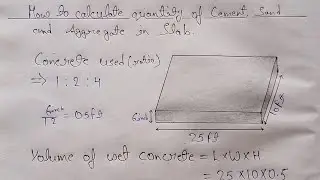 How to calculate quantity of Cement, Sand
and Aggregate in Slab.
Concrete used (ratio)
⇒ 1 : 2 : 4
6inch/12 = 0.5ft
6inch
25ft
10ft
Volume of wet concrete = L×W×H
= 25×10×0.5